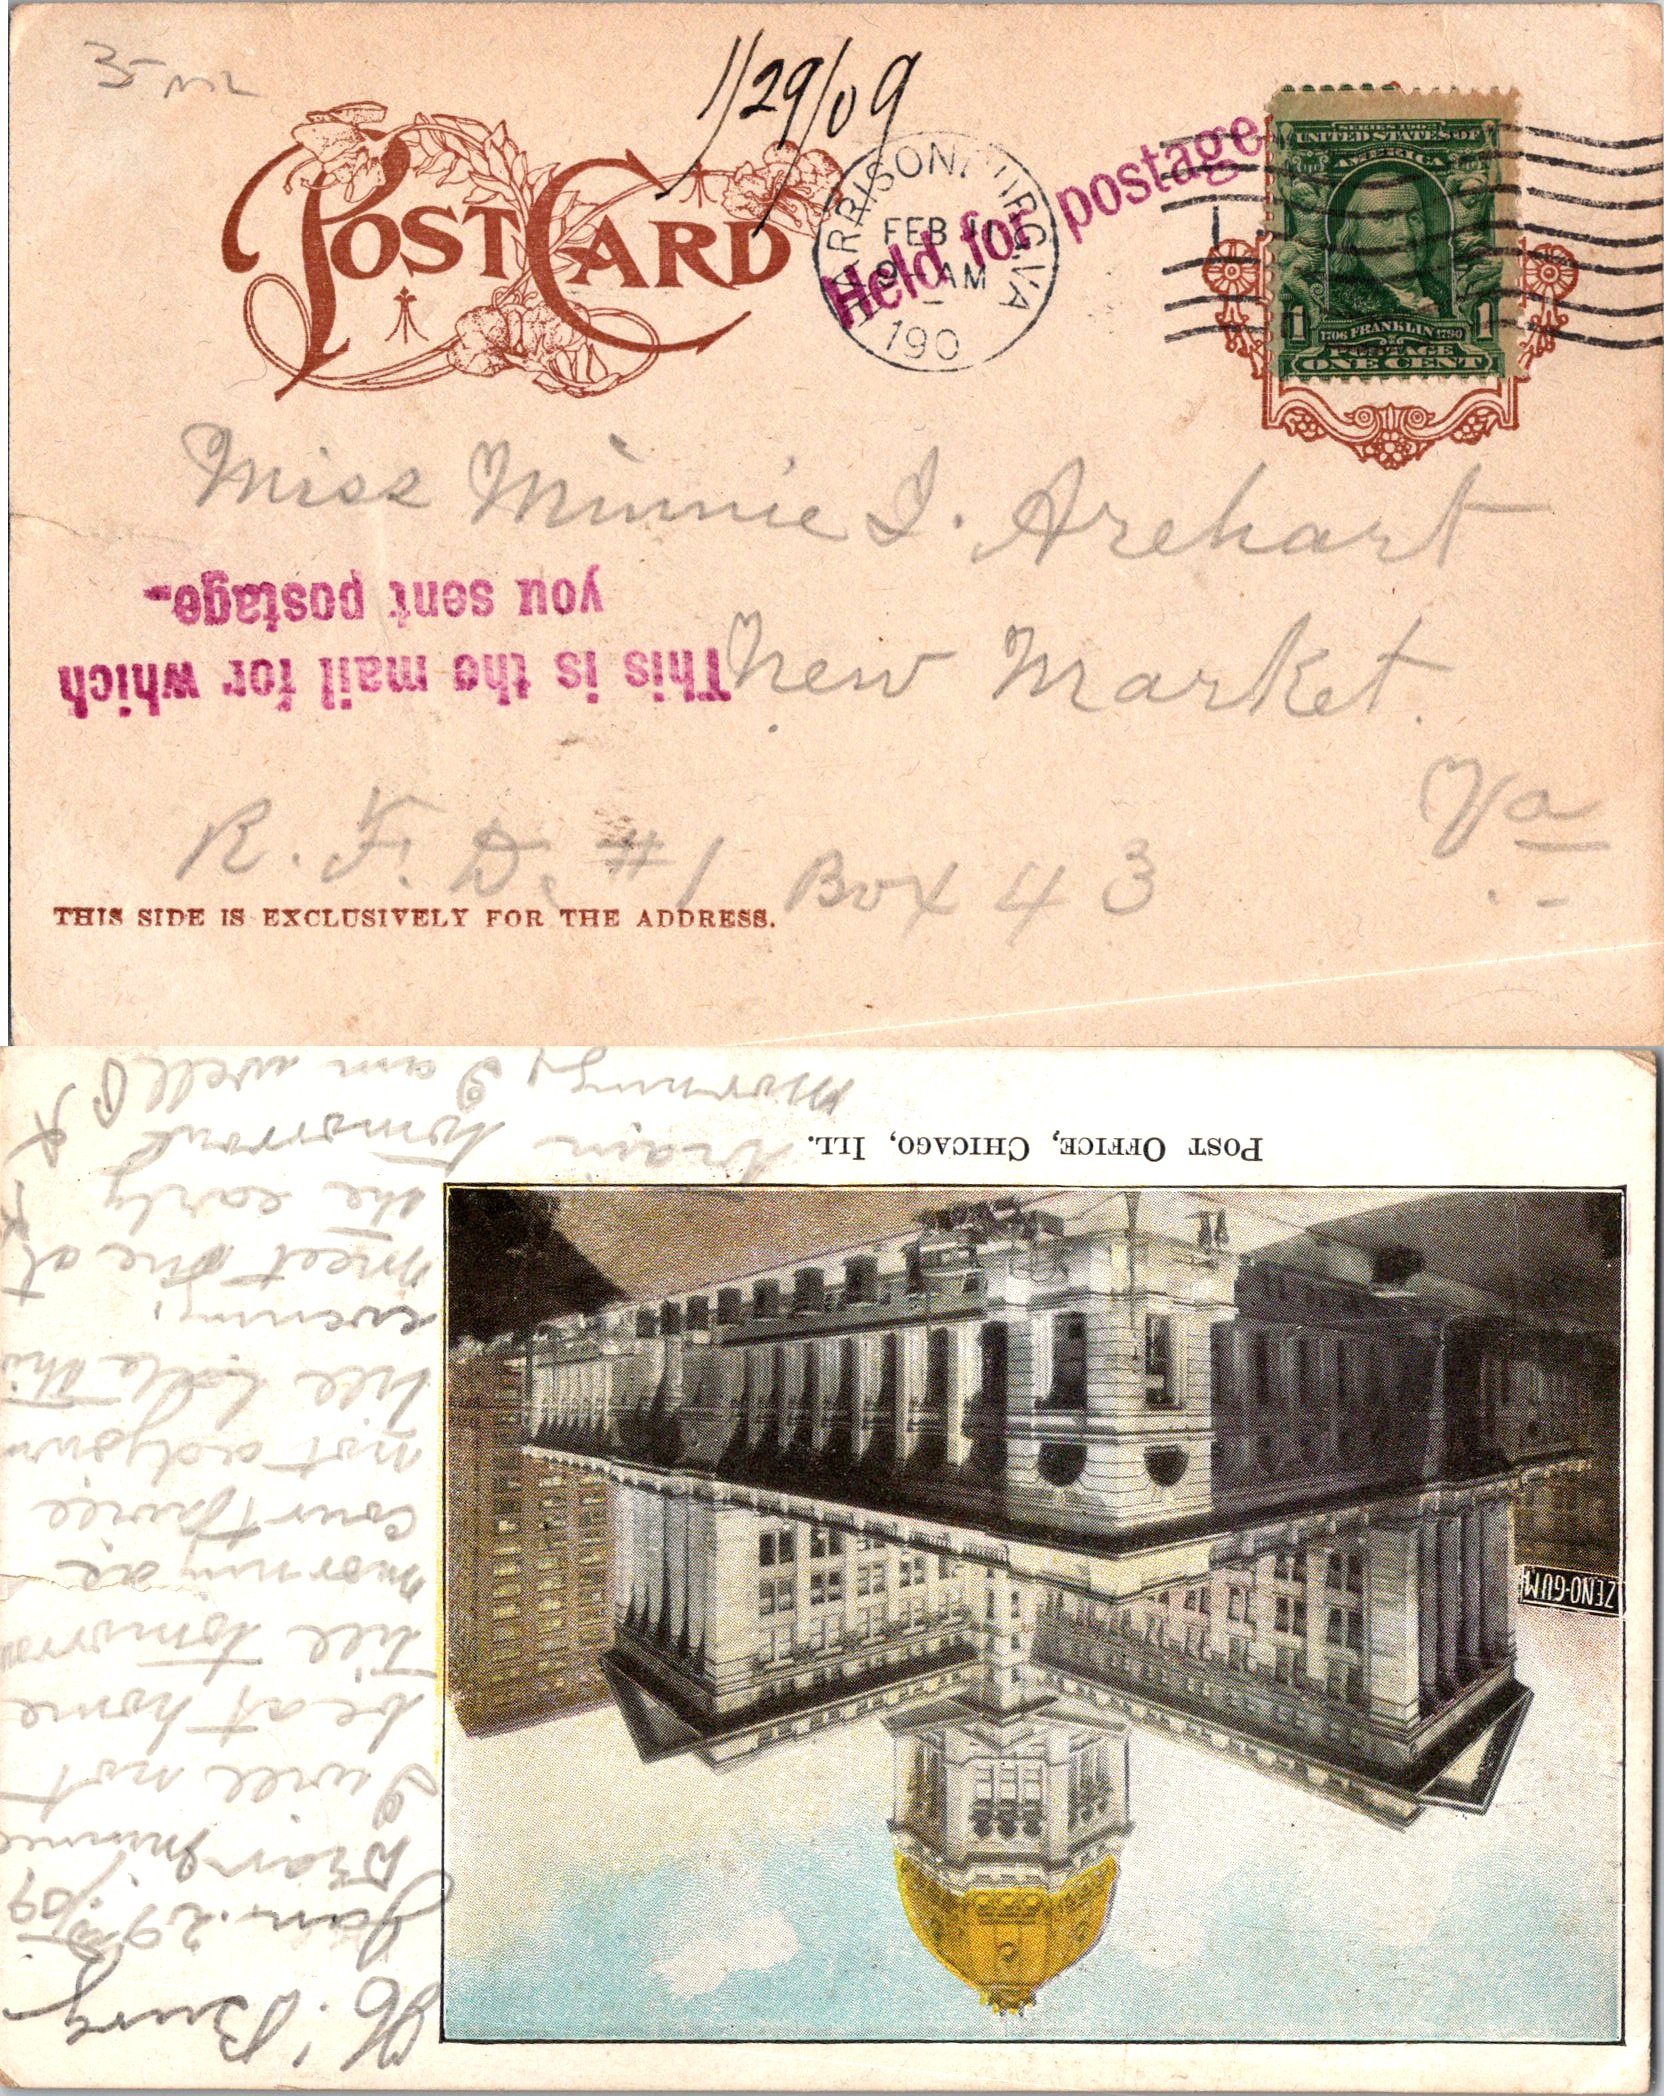 1/29/09
POST CARD
HARRISONBURG, VA
FEB 11
9 - AM
190
Held for postage
SERIES 1902
UNITED STATES OF
AMERICA
1 1706 FRANKLIN 1790 1
POSTAGE
ONE CENT
Miss Minnie I. Arehart
New Market.
Va
R. F. D. #1 Box 43
This is the mail for which
you sent postage.
THIS SIDE IS EXCLUSIVELY FOR THE ADDRESS.
H'Burg
Jan. 29th/09
Dear Minnie
I will not
be at home
till tomorrow
morning as
court will
not adjourn
till late this
evening.
Meet me at
the early
train tomorrow
morning I am well
POST OFFICE, CHICAGO, ILL.
ZENO-GUM